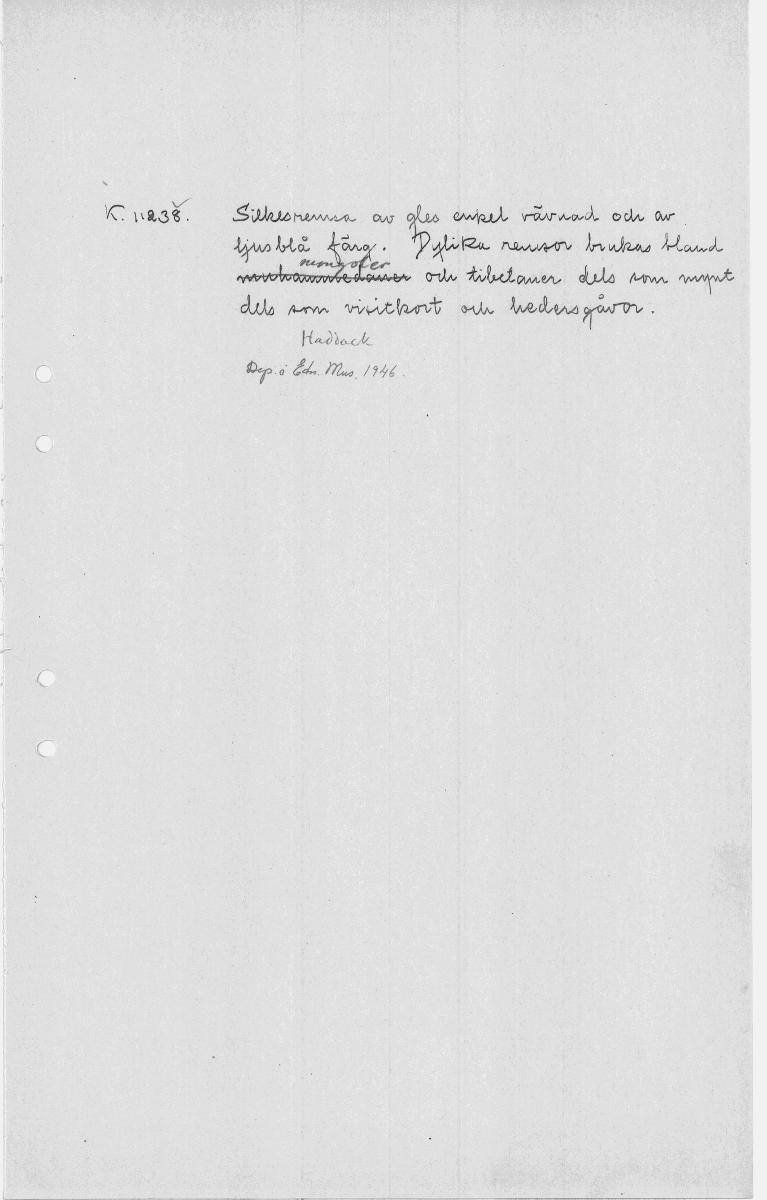 K. 11238. Silkesremsa av gles enkel vävnad och av
ljusblå färg. Dylika remsor brukas bland
mongoler
muhammedaner och tibetaner dels som mynt
dels som visitkort och hedersgåvor.
Haddack
Dep. i Etn. Mus. 1946.